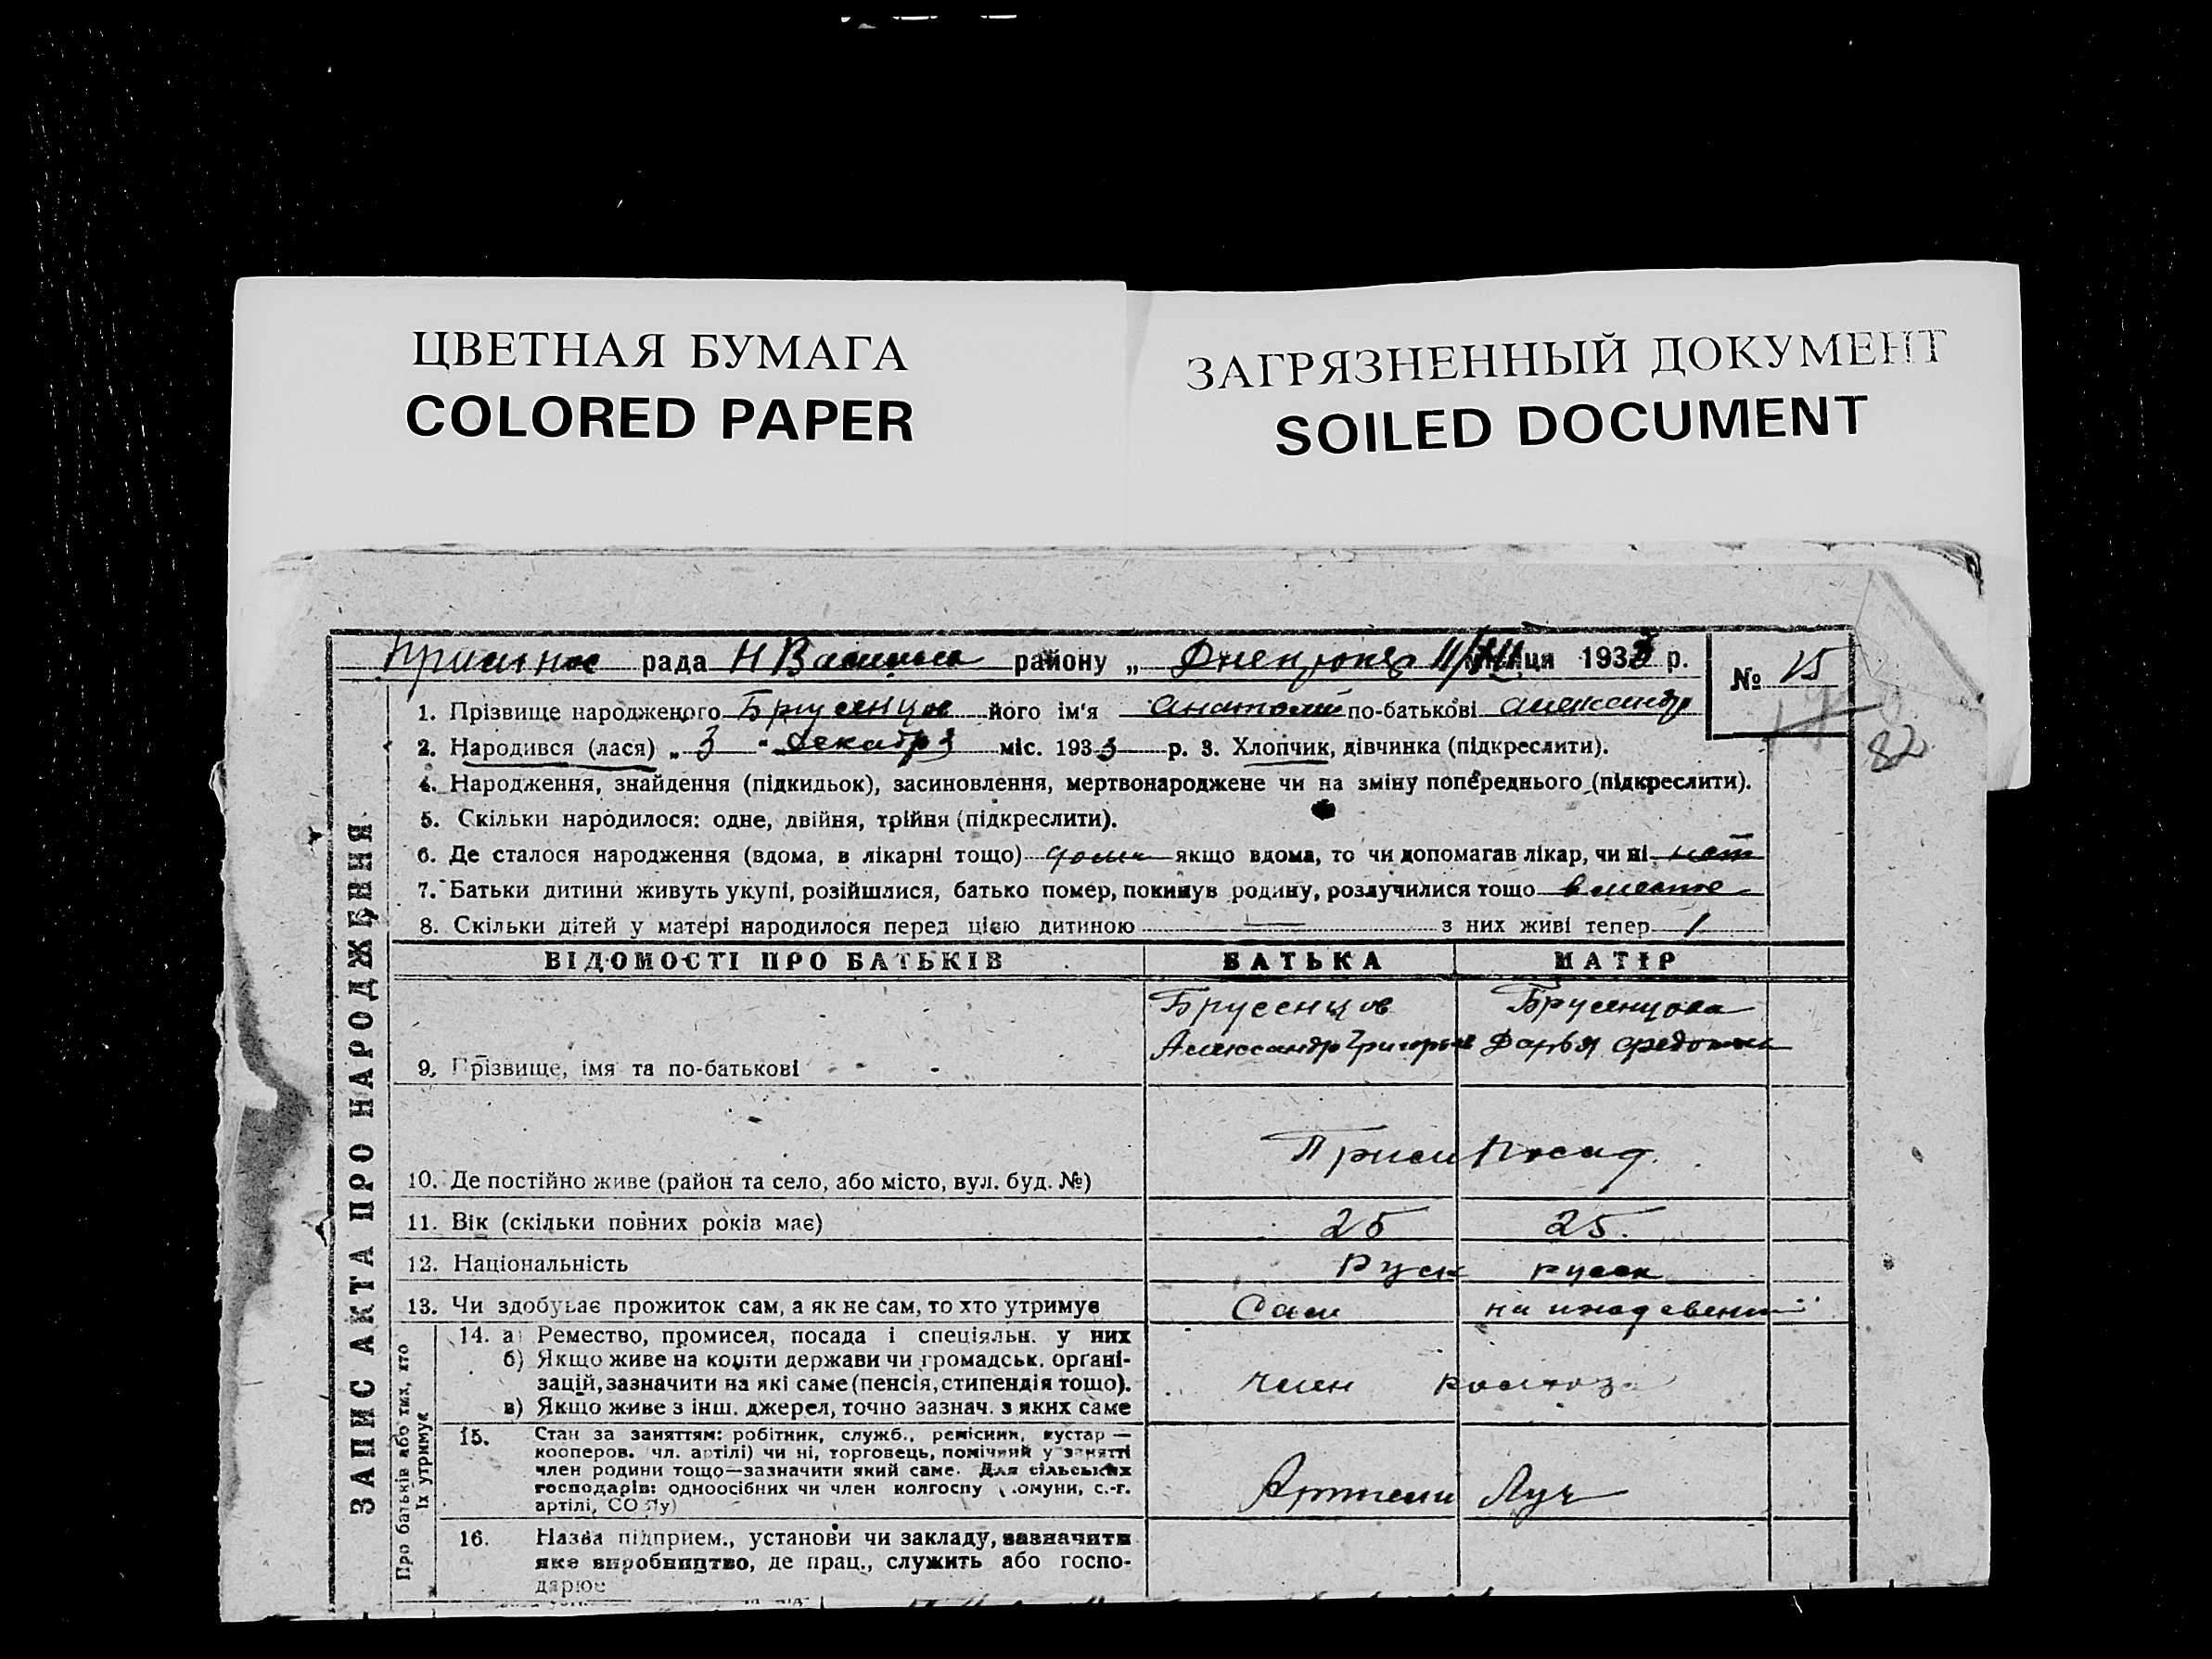 ЦВЕТНАЯ БУМАГА
COLORED PAPER
ЗАГРЯЗНЕННЫЙ ДОКУМЕНТ
SOILED DOCUMENT
рада Н района „ 11/XII 1933 р.
№ 15
82
ЗАПИС АКТА ПРО НАРОДЖЕННЯ
1. Прізвище народженого Брусенцов його ім'я Анатолий по-батькові Александр
2. Народився (лася) „ 3 " декабря міс. 1933 р. 3. Хлопчик, дівчинка (підкреслити).
4. Народження, знайдення (підкидьок), засиновлення, мертвонароджене чи на зміну попереднього (підкреслити).
5. Скільки народилося: одне, двійня, трійня (підкреслити).
6. Де сталося народження (вдома, в лікарні тощо) дома якщо вдома, то чи допомагав лікар, чи ні нет
7. Батьки дитини живуть укупі, розійшлися, батько помер, покинув родину, розлучилися тощо вместе
8. Скільки дітей у матері народилося перед цією дитиною — з них живі тепер 1
ВІДОМОСТІ ПРО БАТЬКІВ БАТЬКА МАТІР
Брусенцов Брусенцова
Александр Григорьев Дарья Федотовн
9. Прізвище, імя та по-батькові
10. Де постійно живе (район та село, або місто, вул. буд. №)
11. Вік (скільки повних років має) 25 25.
12. Національність Руск русск
13. Чи здобуває прожиток сам, а як не сам, то хто утримує Сам на иждевени
Про батьків або тих, хто їх утримує
14. а) Ремество, промисел, посада і спеціяльн. у них
б) Якщо живе на кошти держави чи громадськ. органі-
зацій, зазначити на які саме (пенсія, стипендія тощо).
в) Якщо живе з інш. джерел, точно зазнач. з яких саме
член колхоза
15. Стан за заняттям: робітник, служб., ремісник, кустар —
кооперов. чл. артілі) чи ні, торговець, помічний у занятті
член родини тощо—зазначити який саме. Для сільських
господарів: одноосібних чи член колгоспу (комуни, с.-г.
артілі, СОЗу)
Артели Луч
16. Назва підприєм., установи чи закладу, зазначити
яке виробництво, де прац., служить або госпо-
дарює